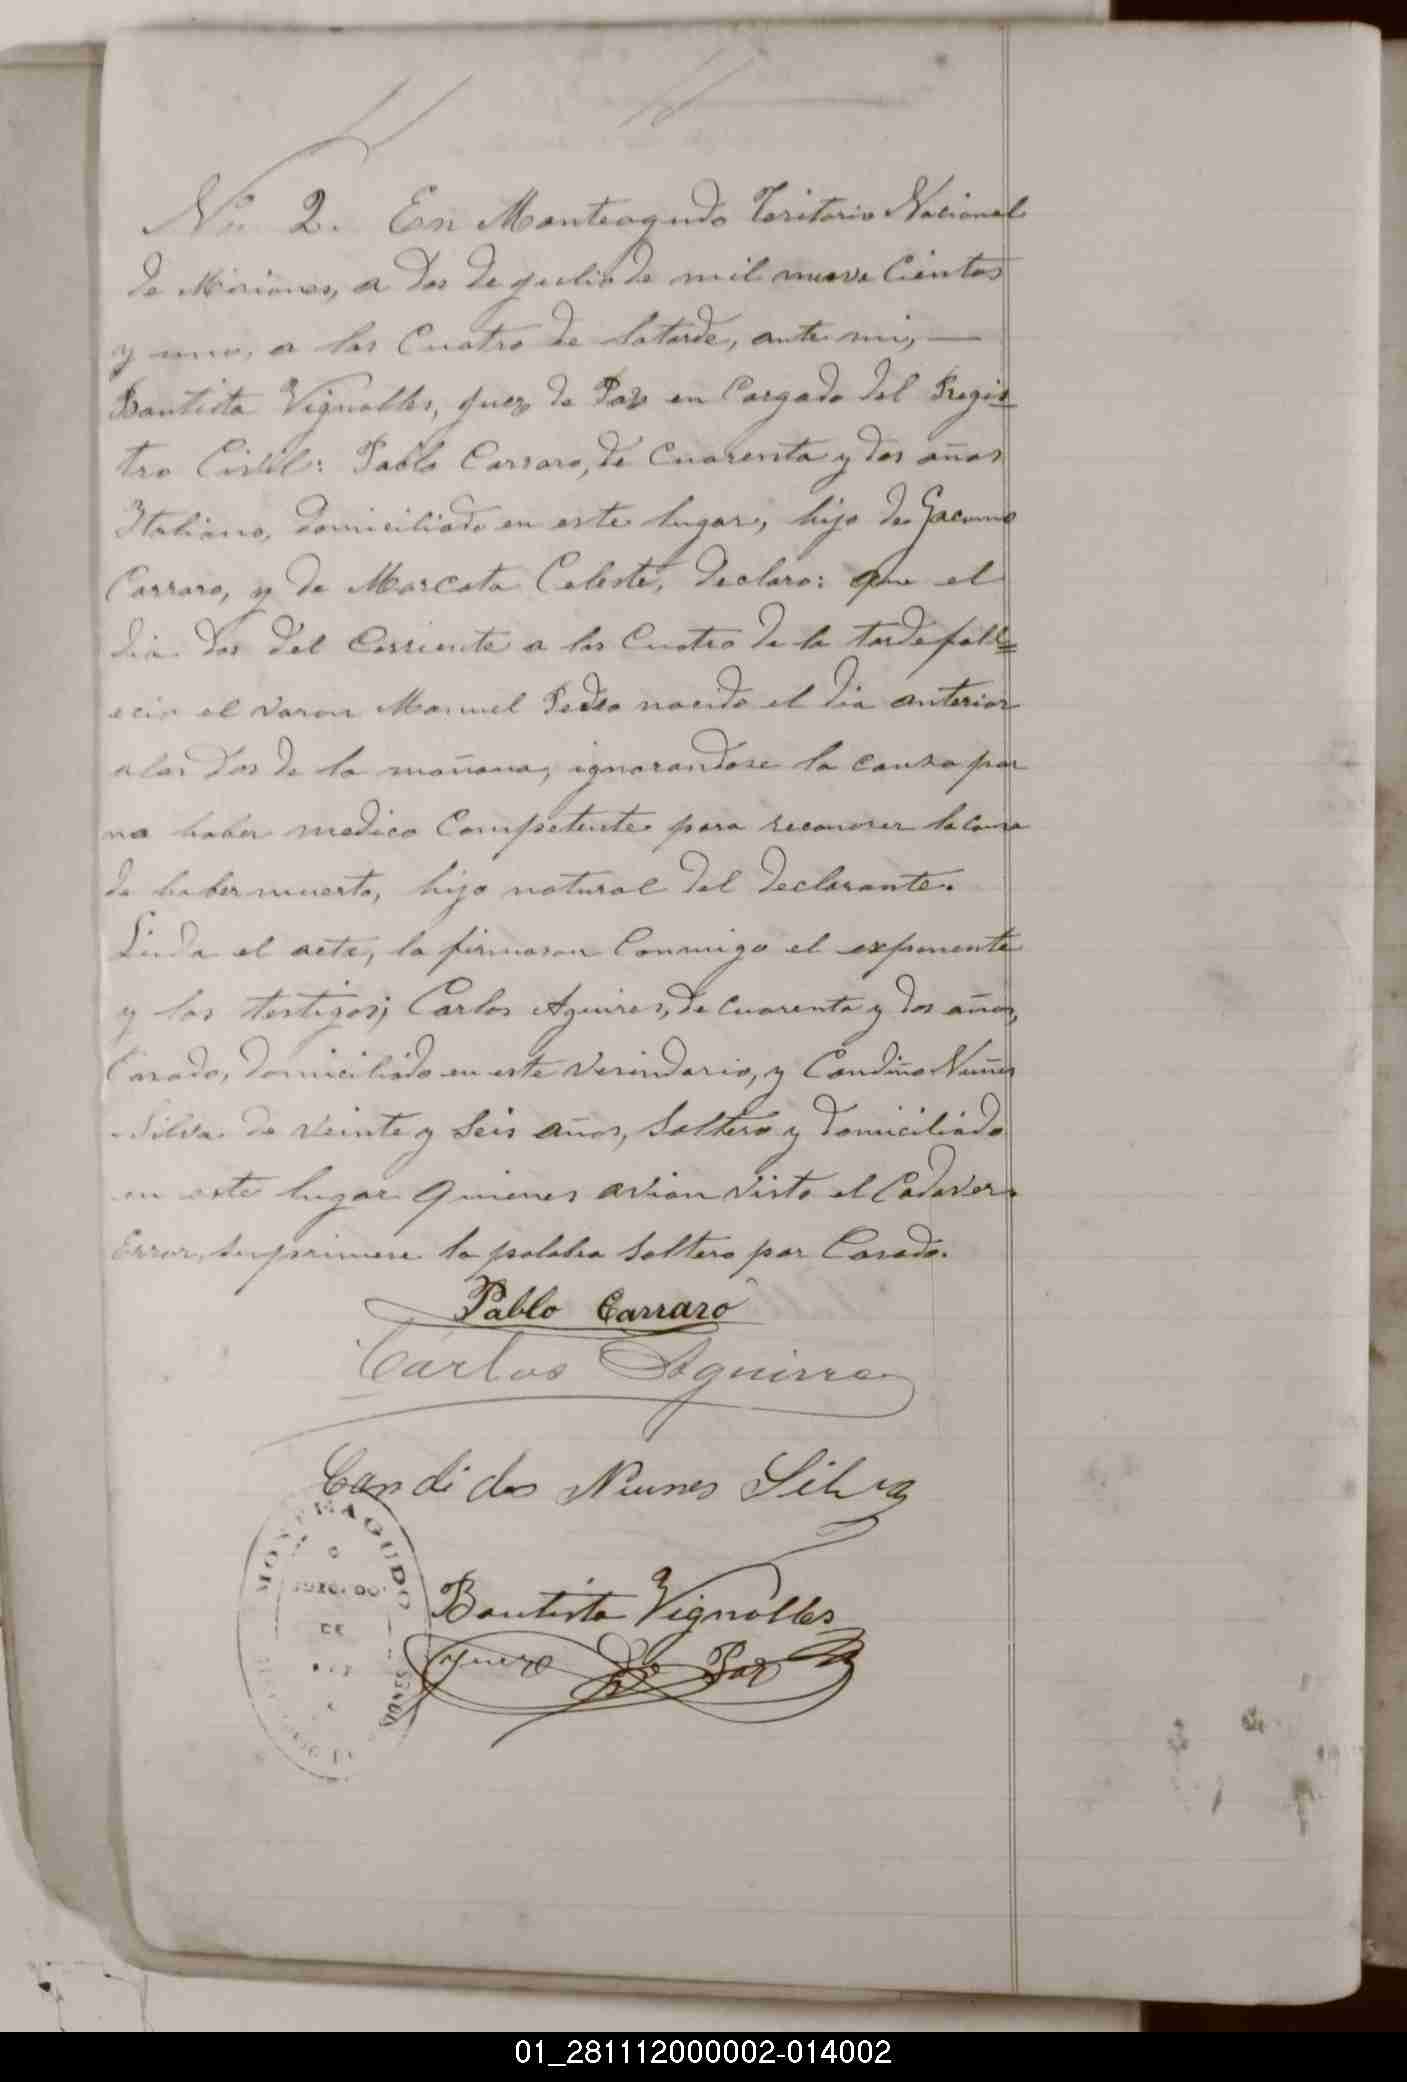 No 2. En Monteagudo Teritorio Nacional
de Misiones, a dos de julio de mil nueve Cientos
y uno, a las Cuatro de la tarde, ante mi,
Bautista Vignolles, juez de Paz en Cargado del Regis-
tro Civil: Pablo Carraro, de Cuarenta y dos años
Italiano, domiciliado en este lugar, hijo de Gacomo
Carraro, y de Marcata Celeste, declaro: que el
dia dos del Corriente a las Cuatro de la tarde fall=
ecio el varon Manuel Pedro nacido el dia anterior
a las dos de la mañana, ignorandose la causa por
no haber medico Competente para reconocer la causa
de haber muerto, hijo natural del declarante.
Leida el acta, la firmaron Conmigo el exponente
y los testigos; Carlos Aguires, de cuarenta y dos años,
Casado, domiciliado en este vesindario, y Candino Nuñes
Silva de veinte y seis años, soltero y domiciliado
en este lugar quienes avian visto el Cadaver.
Error, suprimese la palabra soltero por Casado.
Pablo Carraro
Carlos Aguirre
Candidos Nunes Silva
MONTEAGUDO
MISIONES
Bautista Vignolles
juez de Paz
01_281112000002-014002